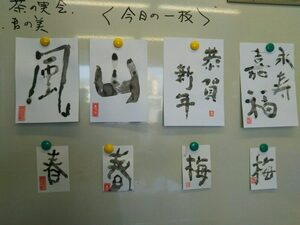 茶の実会
書の美
〈今日の一枚〉
風
山
恭賀
新年
永寿
嘉福
春
春
梅
梅